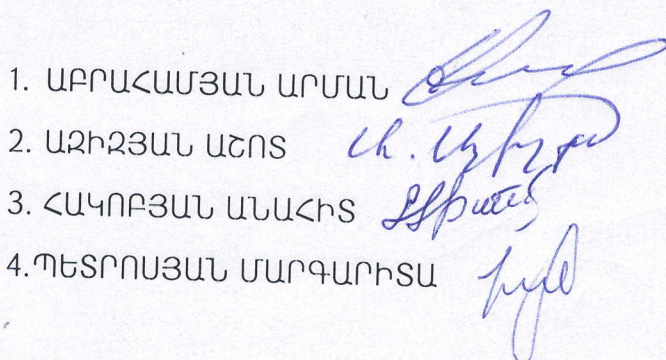 1. ԱԲՐԱՀԱՄՅԱՆ ԱՐՄԱՆ
2. ԱԶԻԶՅԱՆ ԱՇՈՏ
3. ՀԱԿՈԲՅԱՆ ԱՆԱՀԻՏ
4.ՊԵՏՐՈՍՅԱՆ ՄԱՐԳԱՐԻՏԱ